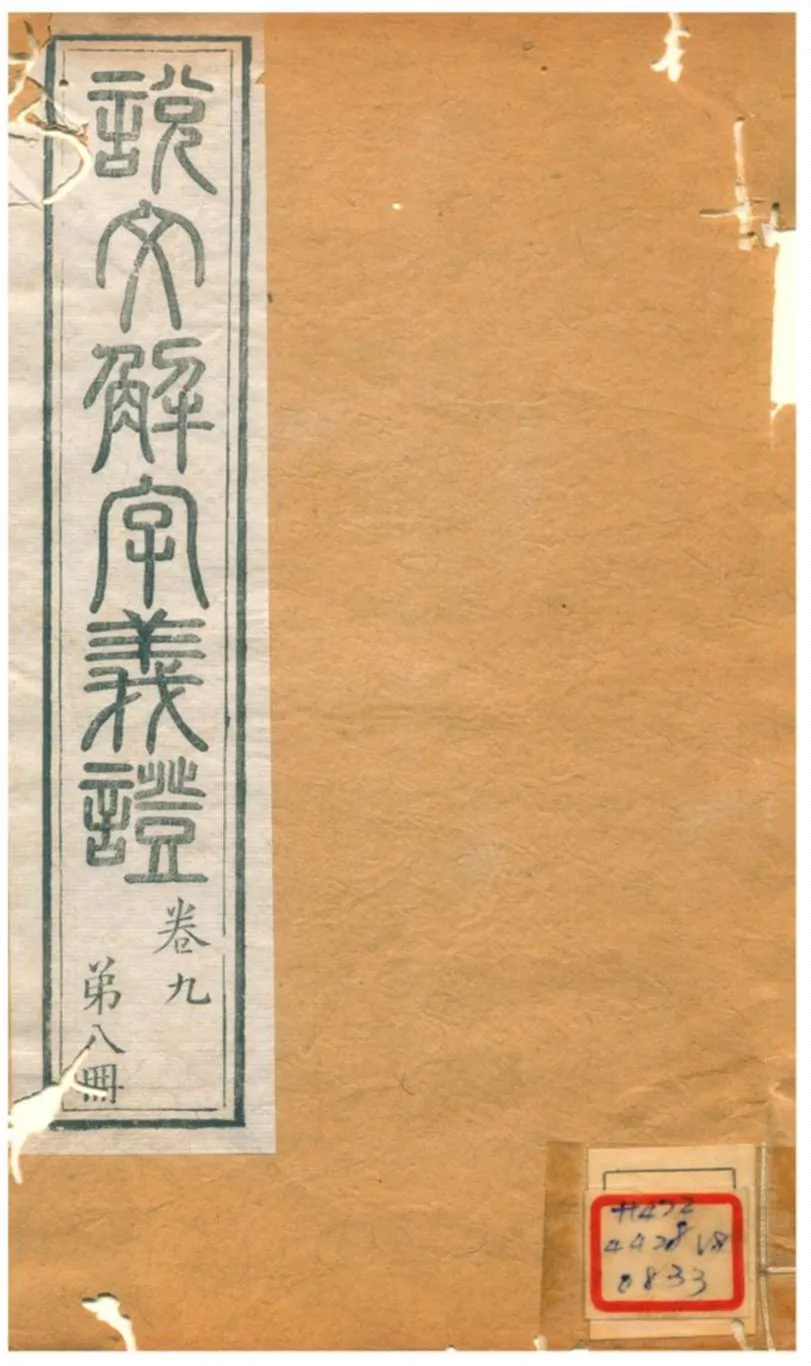 說文解字義證
卷九
第八冊
H472
44208 V8
0833